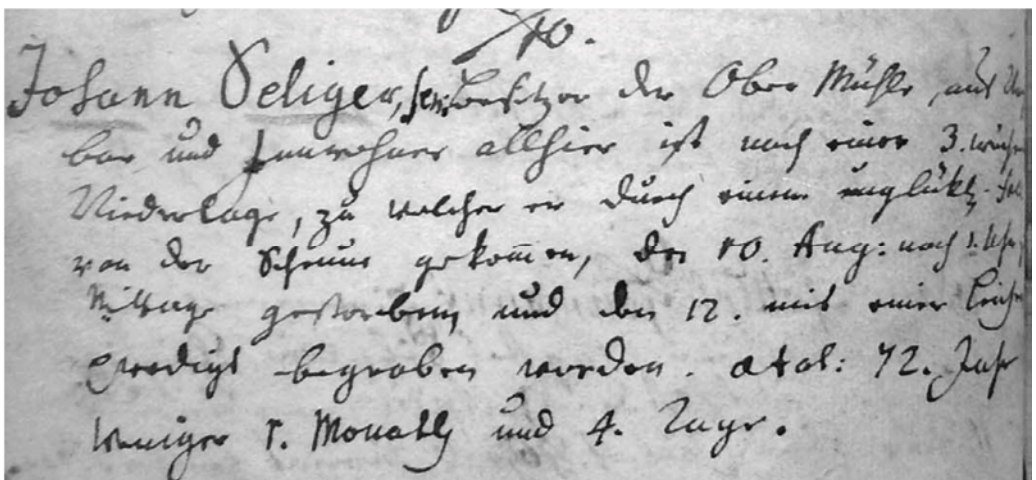 10.
Johann Seliger, sen: Besitzer der Ober Mühle, aus
bar und Innwohner allhier ist nach einer 3. wöch
Niederlage, zu welcher er durch einem unglükl. Fal
von der Scheune gekom̄en, den 10. Aug: nach 1. Uhr
Mittags gestorben, und den 12. mit einer Leich
predigt begraben worden. aetat: 72. Jahr
weniger 1. Monath und 4. Tage.